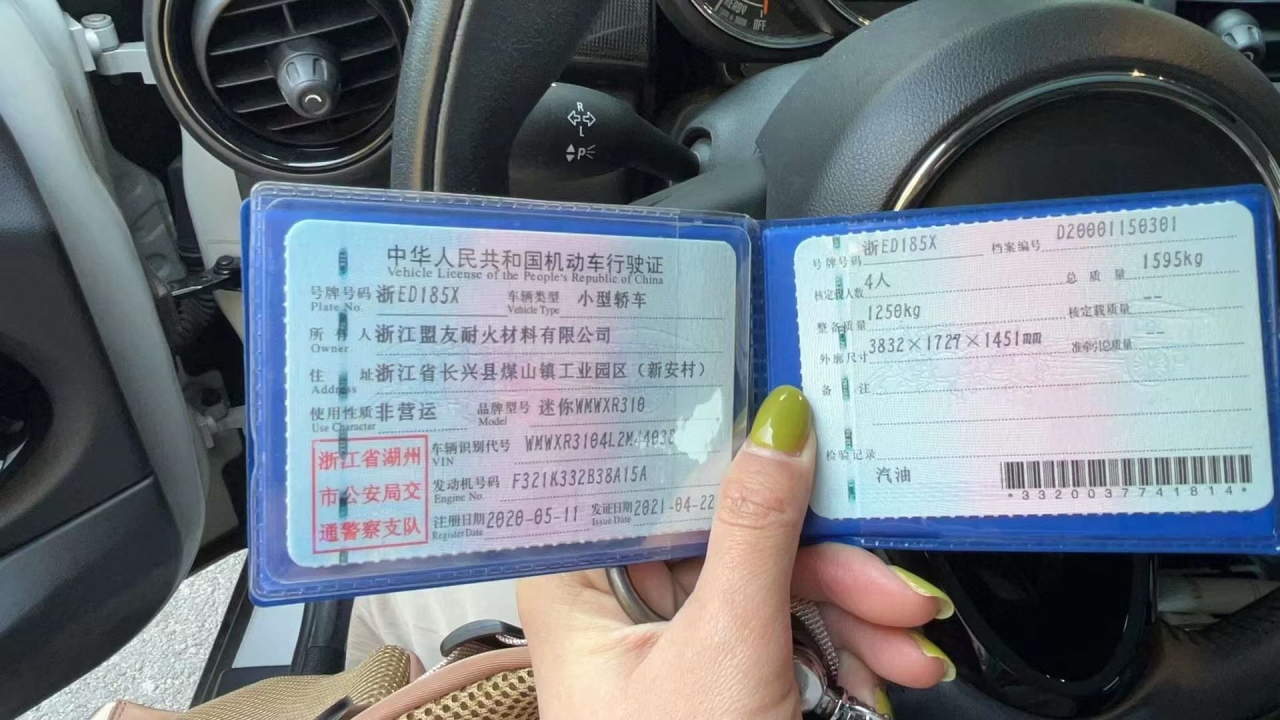 中华人民共和国机动车行驶证
Vehicle License of the People's Republic of China
号牌号码 浙ED185X 车辆类型 小型轿车
Plate No. Vehicle Type
所有人 浙江盟友耐火材料有限公司
Owner
住址 浙江省长兴县煤山镇工业园区（新安村）
Address
使用性质 非营运 品牌型号 迷你WMWXR310
Use Character Model
浙江省湖州
市公安局交
通警察支队
车辆识别代号
VIN
发动机号码 F321K332B38A15A
Engine No.
注册日期 2020-05-11 发证日期 2021-04-22
Register Date Issue Date
号牌号码 浙ED185X 档案编号 D20001150301
核定载人数 4人 总质量 1595kg
整备质量 1250kg 核定载质量 --
外廓尺寸 3832×1727×1451mm 准牵引总质量 --
备注
检验记录
汽油
*3320037741814*
R
L
P
OFF